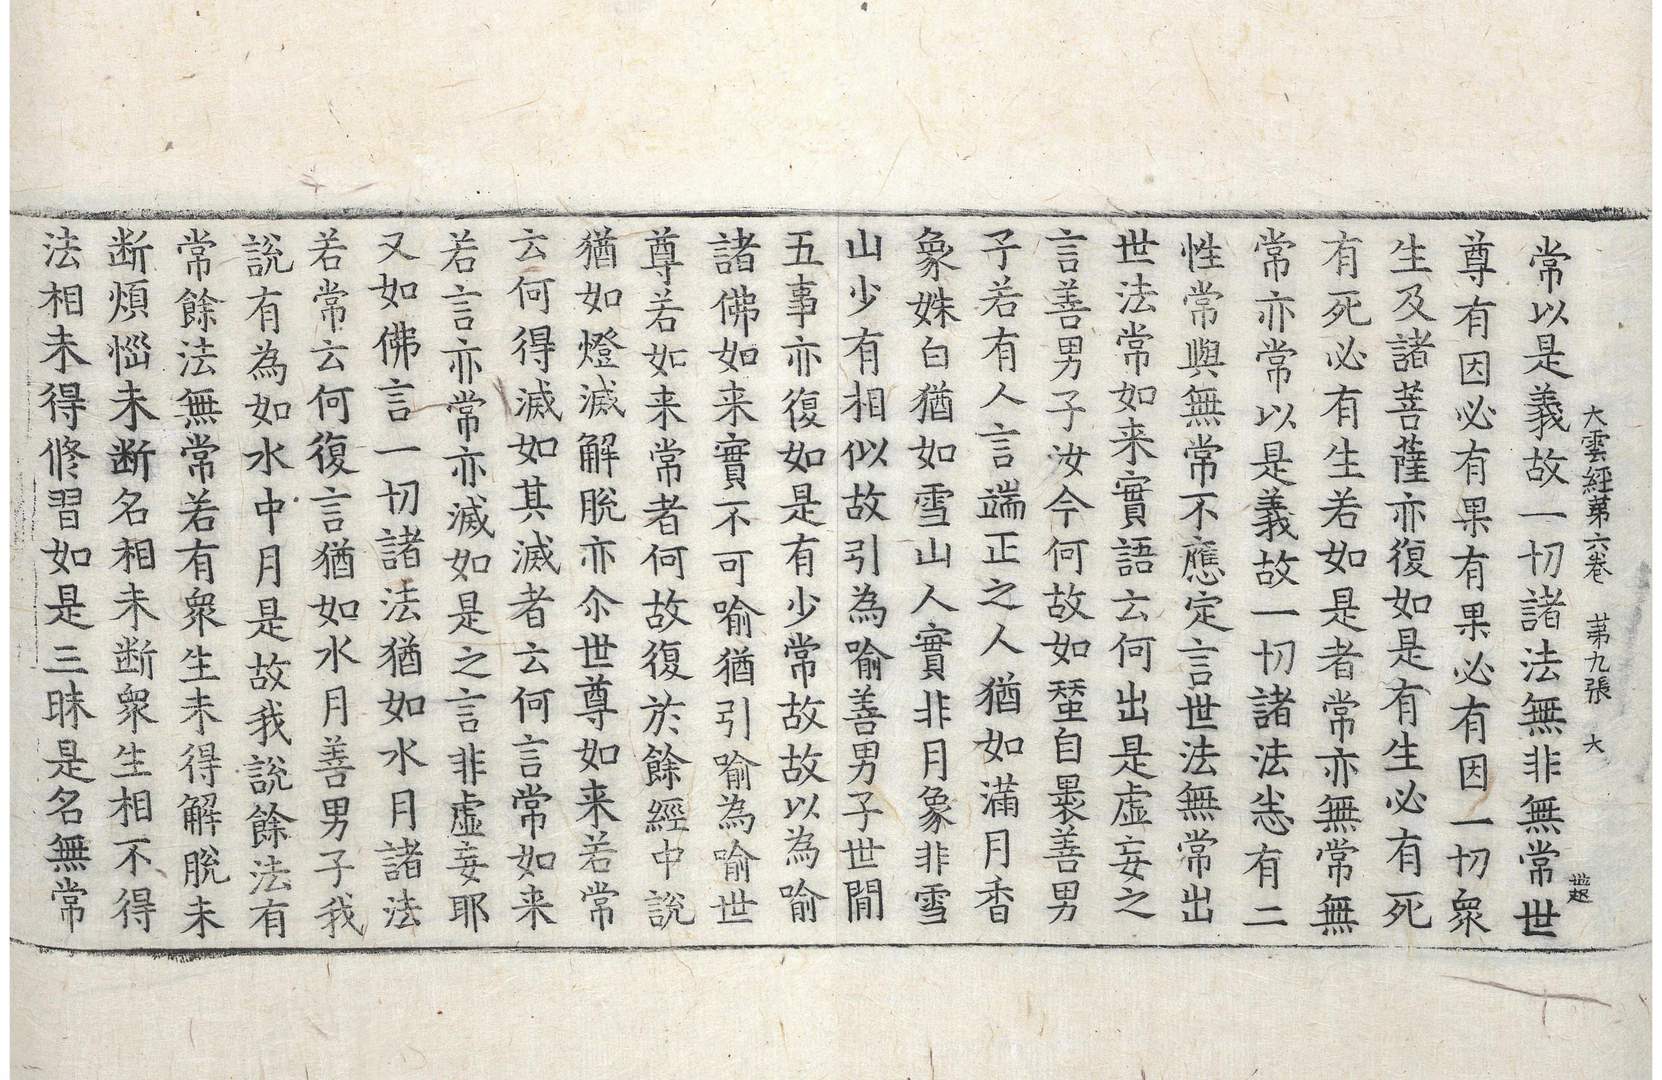 大雲經苐六卷　苐九張　大
常以是義故一切諸法無非無常世
尊有因必有果有果必有因一切衆
生及諸菩薩亦復如是有生必有死
有死必有生若如是者常亦無常無
常亦常以是義故一切諸法恙有二
性常與無常不應定言世法無常出
世法常如来實語云何出是虛妄之
言善男子汝今何故如蝅自褁善男
子若有人言端正之人猶如滿月香
象姝白猶如雪山人實非月象非雪
山少有相似故引為喻善男子世間
五事亦復如是有少常故故以為喻
諸佛如来實不可喻猶引喻為喻世
尊若如来常者何故復於餘經中說
猶如燈滅解脫亦尒世尊如来若常
云何得滅如其滅者云何言常如来
若言亦常亦滅如是之言非虛妄耶
又如佛言一切諸法猶如水月諸法
若常云何復言猶如水月善男子我
說有為如水中月是故我說餘法有
常餘法無常若有衆生未得解脫未
断煩惱未断名相未断衆生相不得
法相未得修習如是三昧是名無常